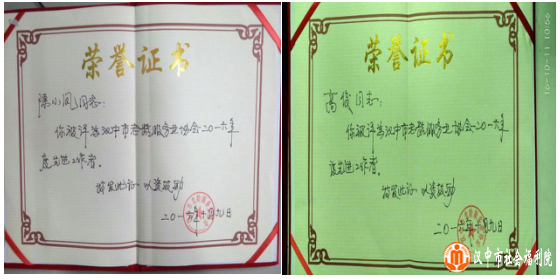 荣誉证书
陈小凤同志:
你被评为汉中市老龄服务业协会二0一六年
度先进工作者。
特发此证 以资鼓励
二0一六年十月九日
荣誉证书
高俊同志:
你被评为汉中市老龄服务业协会二0一六年
度先进工作者。
特发此证 以资鼓励
二0一六年十月九日
16-10-11 10:56
汉中市社会福利院